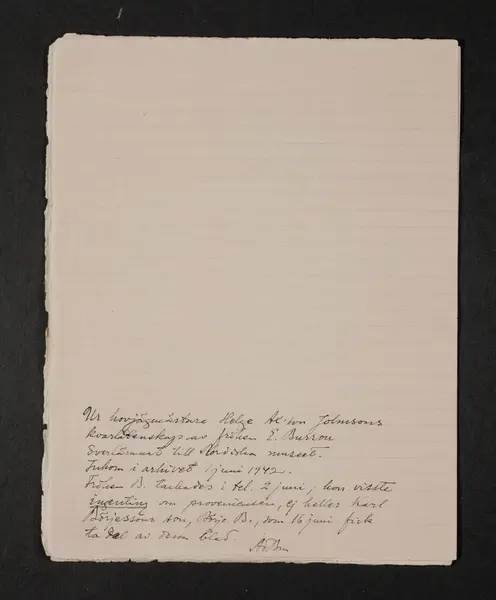 Ur hovjägmästare Helge Ax:son Johnsons
kvarlåtenskap av fröken E. Burrou
överlämnat till Nordiska museet.
Inkom i arkivet 1 juni 1942.
Fröken B. tackades i tel. 2 juni; hon visste
ingenting om proveniensen, ej heller Karl
Börjessons son, Börje B., som 16 juni fick
ta del av dessa blad.